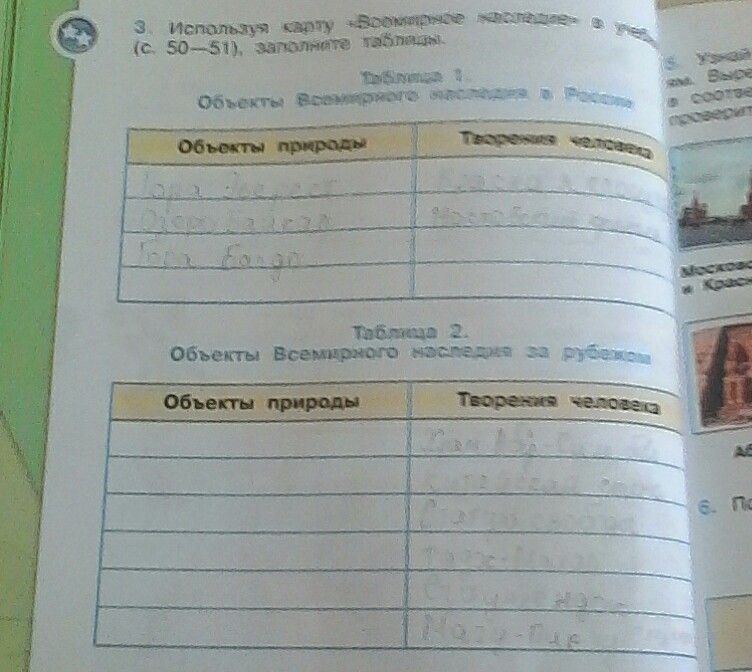 3. Используя карту «Всемирное наследие» в
(с. 50—51), заполните таблицы.
Таблица 1.
Объекты Всемирного наследия в России
Объекты природы
Творения человека
Гора Эверест
Озеро Байкал
Московский
Гора Богдо
Таблица 2.
Объекты Всемирного наследия за рубежом
Объекты природы
Творения человека
Китайская
Статуя
Тадж-Махал
Мачу-Пик
5. Узнай
ям. Выре
в соотве
проверит
Московс
и Красн
Аб
6. По